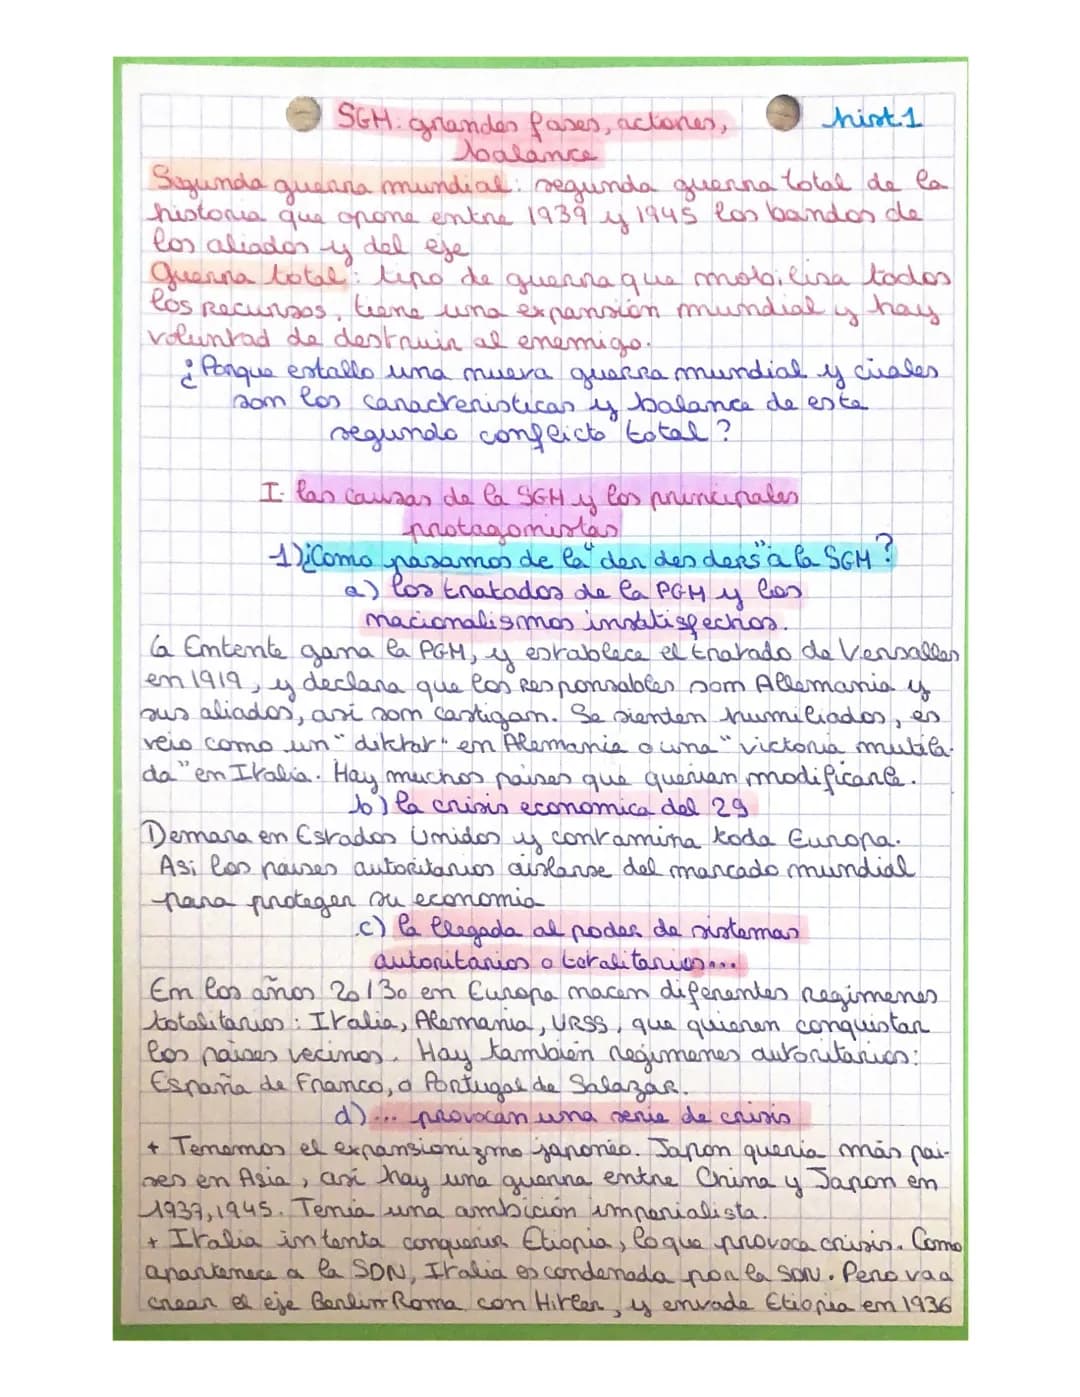 SGM: grandes fases, actores,
hist 1
balance
Segunda guerra mundial: segunda guerra total de la
historia que opone entre 1939 y 1945 los bandos de
los aliados y del eje
Guerra total: tipo de guerra que mobilisa todos
los recursos, tiene una expansión mundial y hay
voluntad de destruir al enemigo.
¿Porque estallo una nueva guerra mundial y cúales
son los caracteristicas y balance de este
segundo conflicto total?
I- las causas de la SGM y los principales
protagonistas
1) ¿Como pasamos de la "der des ders" a la SGM?
a) los tratados de la PGM y los
nacionalismos insatisfechos.
la Entente gana la PGM, y establece el tratado de Versalles
en 1919, y declara que los responsables son Allemania y
sus aliados, así son castigan. Se sienten humiliados, es
veio como un "diktat" en Alemania o una "victoria mutila-
da" en Italia. Hay muchos países que querian modificarle.
b) la crisis economica del 29
Demara en Estados Unidos y contamina toda Europa.
Asi los países autoritarios aislarse del mercado mundial
para proteger su economia
c) la llegada al poder de sistemas
autoritarios o totalitarios...
En los años 20/30 en Europa nacen diferentes regimenes
totalitarios: Italia, Alemania, URSS, que quieren conquistar
los países vecinos. Hay también regimenes autoritarios:
España de Franco, o Portugal de Salazar.
d) ... provocan una serie de crisis
+ Tenemos el expansionizmo japonéo. Japon queria más paí-
ses en Asia, así hay una guerra entre China y Japon en
1937, 1945. Tenía una ambición imperialista.
+ Italia intenta conquerir Etiopia, lo que provoca crisis. Como
apartenece a la SDN, Italia es condenada por la SDN. Pero va a
crear el eje Berlin-Roma con Hitler, y envade Etiopia en 1936